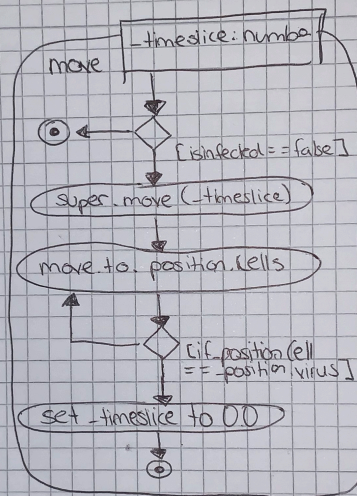 _timeslice:number
move
[isinfected==false]
super.move(_timeslice)
move.to.position.Cells
[if_position(ell
==_position.virus]
set _timeslice to 0.0